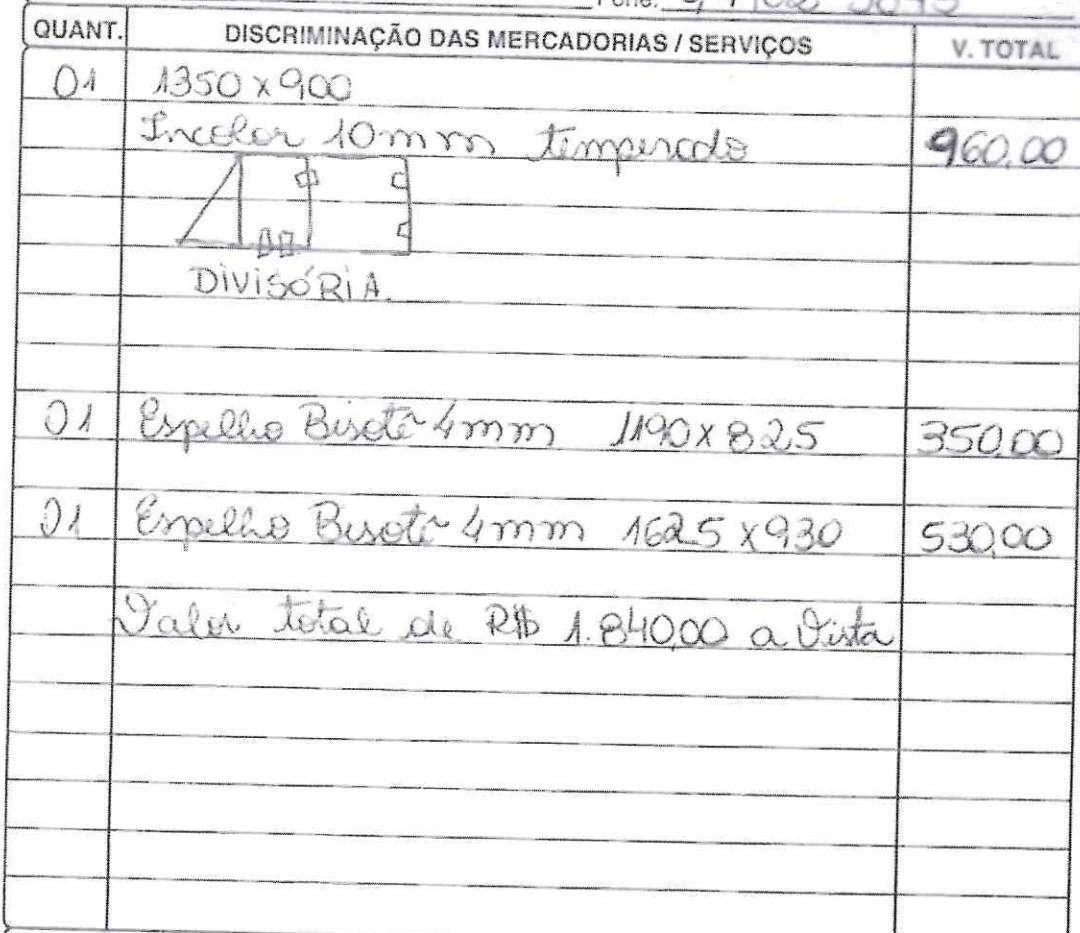 Fone:
QUANT. DISCRIMINAÇÃO DAS MERCADORIAS / SERVIÇOS V. TOTAL
01 1350 x 900
Incolor 10mm temperado 960,00
DIVISÓRIA.
01 Espelho Bisotê 4mm 1190 x 825 350,00
01 Espelho Bisotê 4mm 1625 x 930 530,00
Valor total de R$ 1.840,00 a Vista